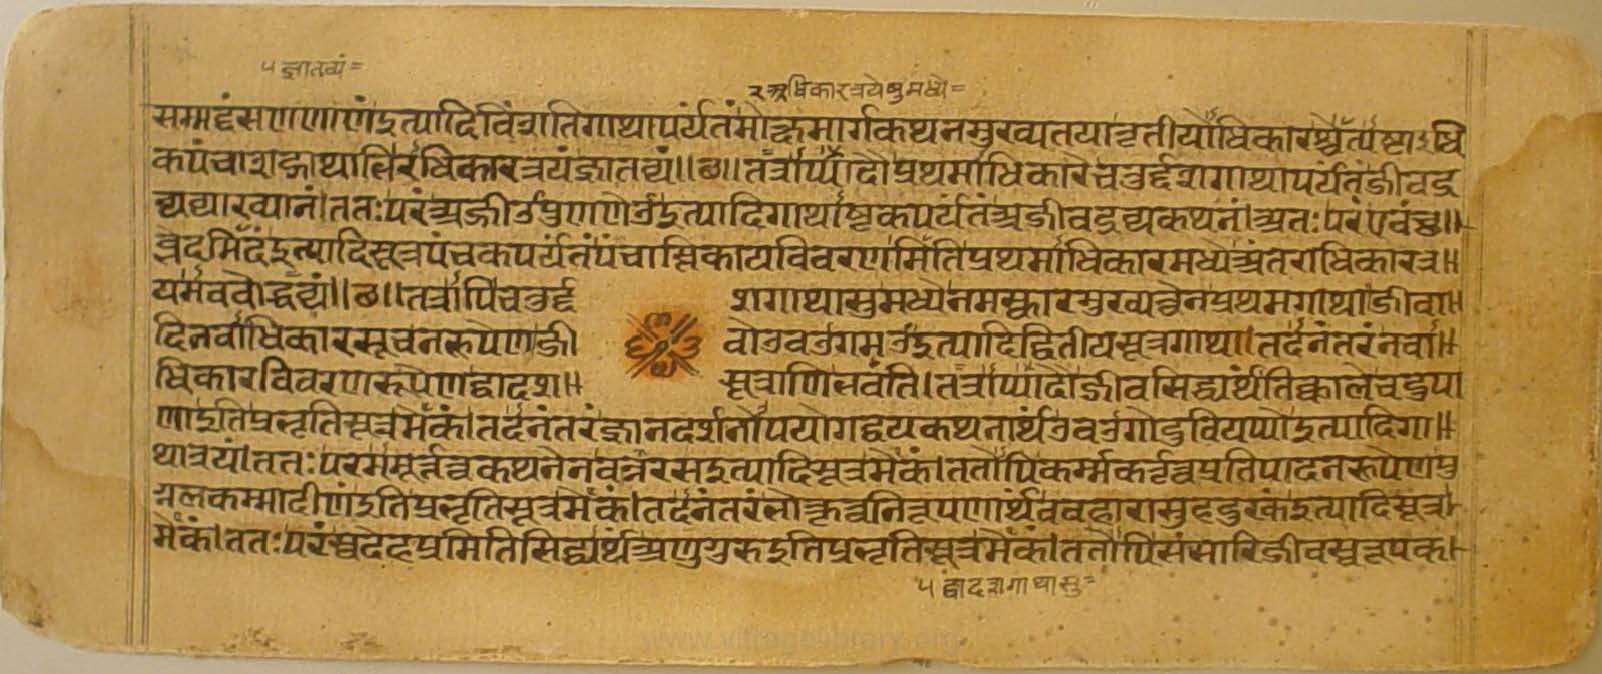 ५ ज्ञातव्यं=
२ अधिकारत्रयेषु मध्ये=
सम्मद्दंसणणाणंइत्यादिविंशतिगाथापर्यंतंमोक्षमार्गकथनमुख्यतयातृतीयोधिकारश्चेत्यष्टाऽधि
कपंचाशद्गाथाभिरधिकारत्रयंज्ञातव्यं॥छ॥तत्राप्यादौप्रथमाधिकारेचतुर्द्दशगाथापर्यंतंजीवद्र
व्यव्याख्यानं।ततःपरंअज्जीउपुणणेउइत्यादिगाथाष्टकपर्यंतंअजीवद्रव्यकथनं।अतःपरंएवंछ॥
ब्भेदमिदंइत्यादिसूत्रपंचकपर्यंतंपंचास्तिकायविवरणमितिप्रथमाधिकारमध्येअंतराधिकारत्र॥
यमवबोद्धव्यं॥छ॥तत्रापिचतुर्द्द शगाथासुमध्येनमस्कारमुख्यत्वेनप्रथमगाथाजीवा॥
दिनवाधिकारसूचनरूपेणजी वोउवउगमउइत्यादिद्वितीयसूत्रगाथा।तदनंतरंनवा॥
धिकारविवरणरूपेणद्वादश॥ सूत्राणिभवंति।तत्राप्यादौजीवसिद्ध्यर्थंतिक्कालेचदुपा
णाइतिप्रभृतिसूत्रमेकं।तदनंतरंज्ञानदर्शनोपयोगद्वयकथनार्थंउवउगोदुवियप्पोइत्यादिगा॥
थात्रयं।ततःपरममूर्त्तत्वकथनेनवन्नरसइत्यादिसूत्रमेकं।ततोपिकर्म्मकर्तृत्वप्रतिपादनरूपेणपु
ग्गलकम्मादीणंइतिप्रभृतिसूत्रमेकं।तदनंतरंभोक्तृत्वनिरूपणार्थंववहारासुहदुखंइत्यादिसूत्र।
मेकं।ततःपरंस्वदेहप्रमितिसिद्ध्यर्थंअणुगुरुइतिप्रभृतिसूत्रमेकं।ततोपिसंसारिजीवस्वरूपक।
५ द्वादशगाथासु=
www.vitragelibrary.org